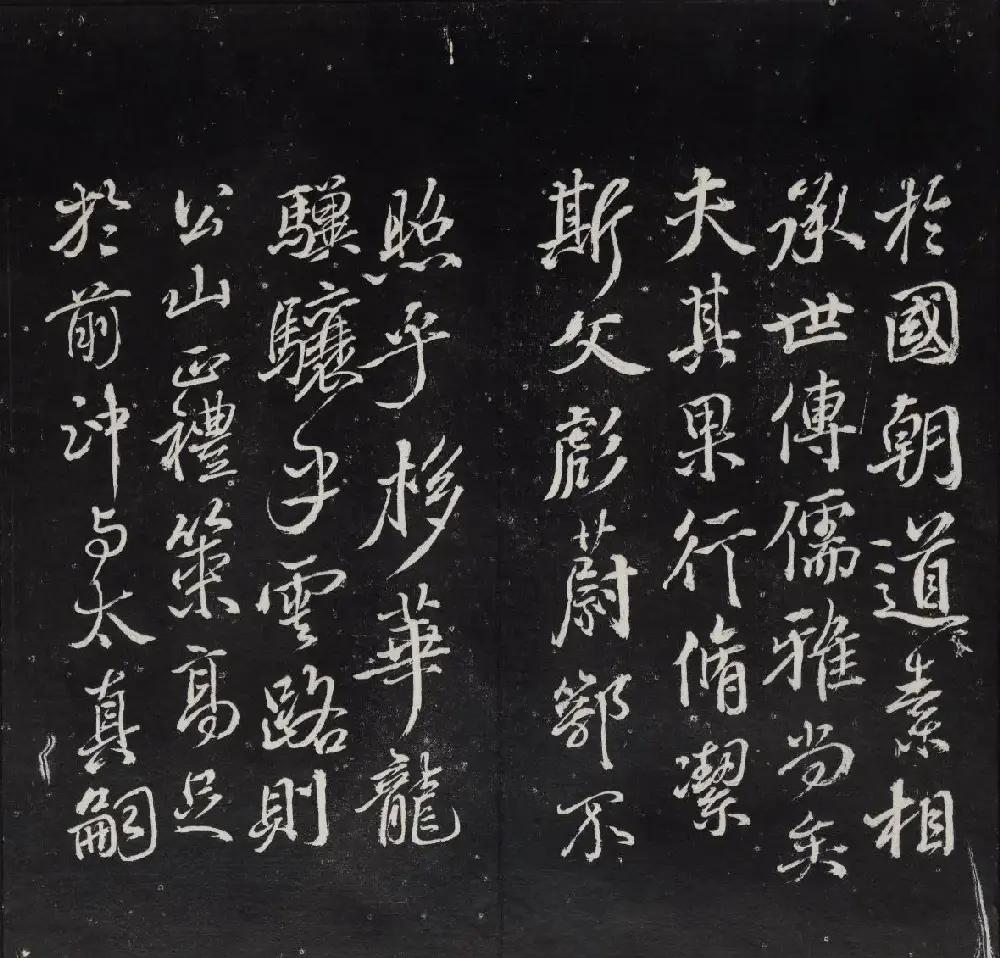 於國朝道素相
承世傳儒雅尚矣
夫其果行脩潔
斯文彪蔚鄂不
照乎栘華龍
驥驤乎雲路則
公山正禮策高足
於前沖与太真嗣